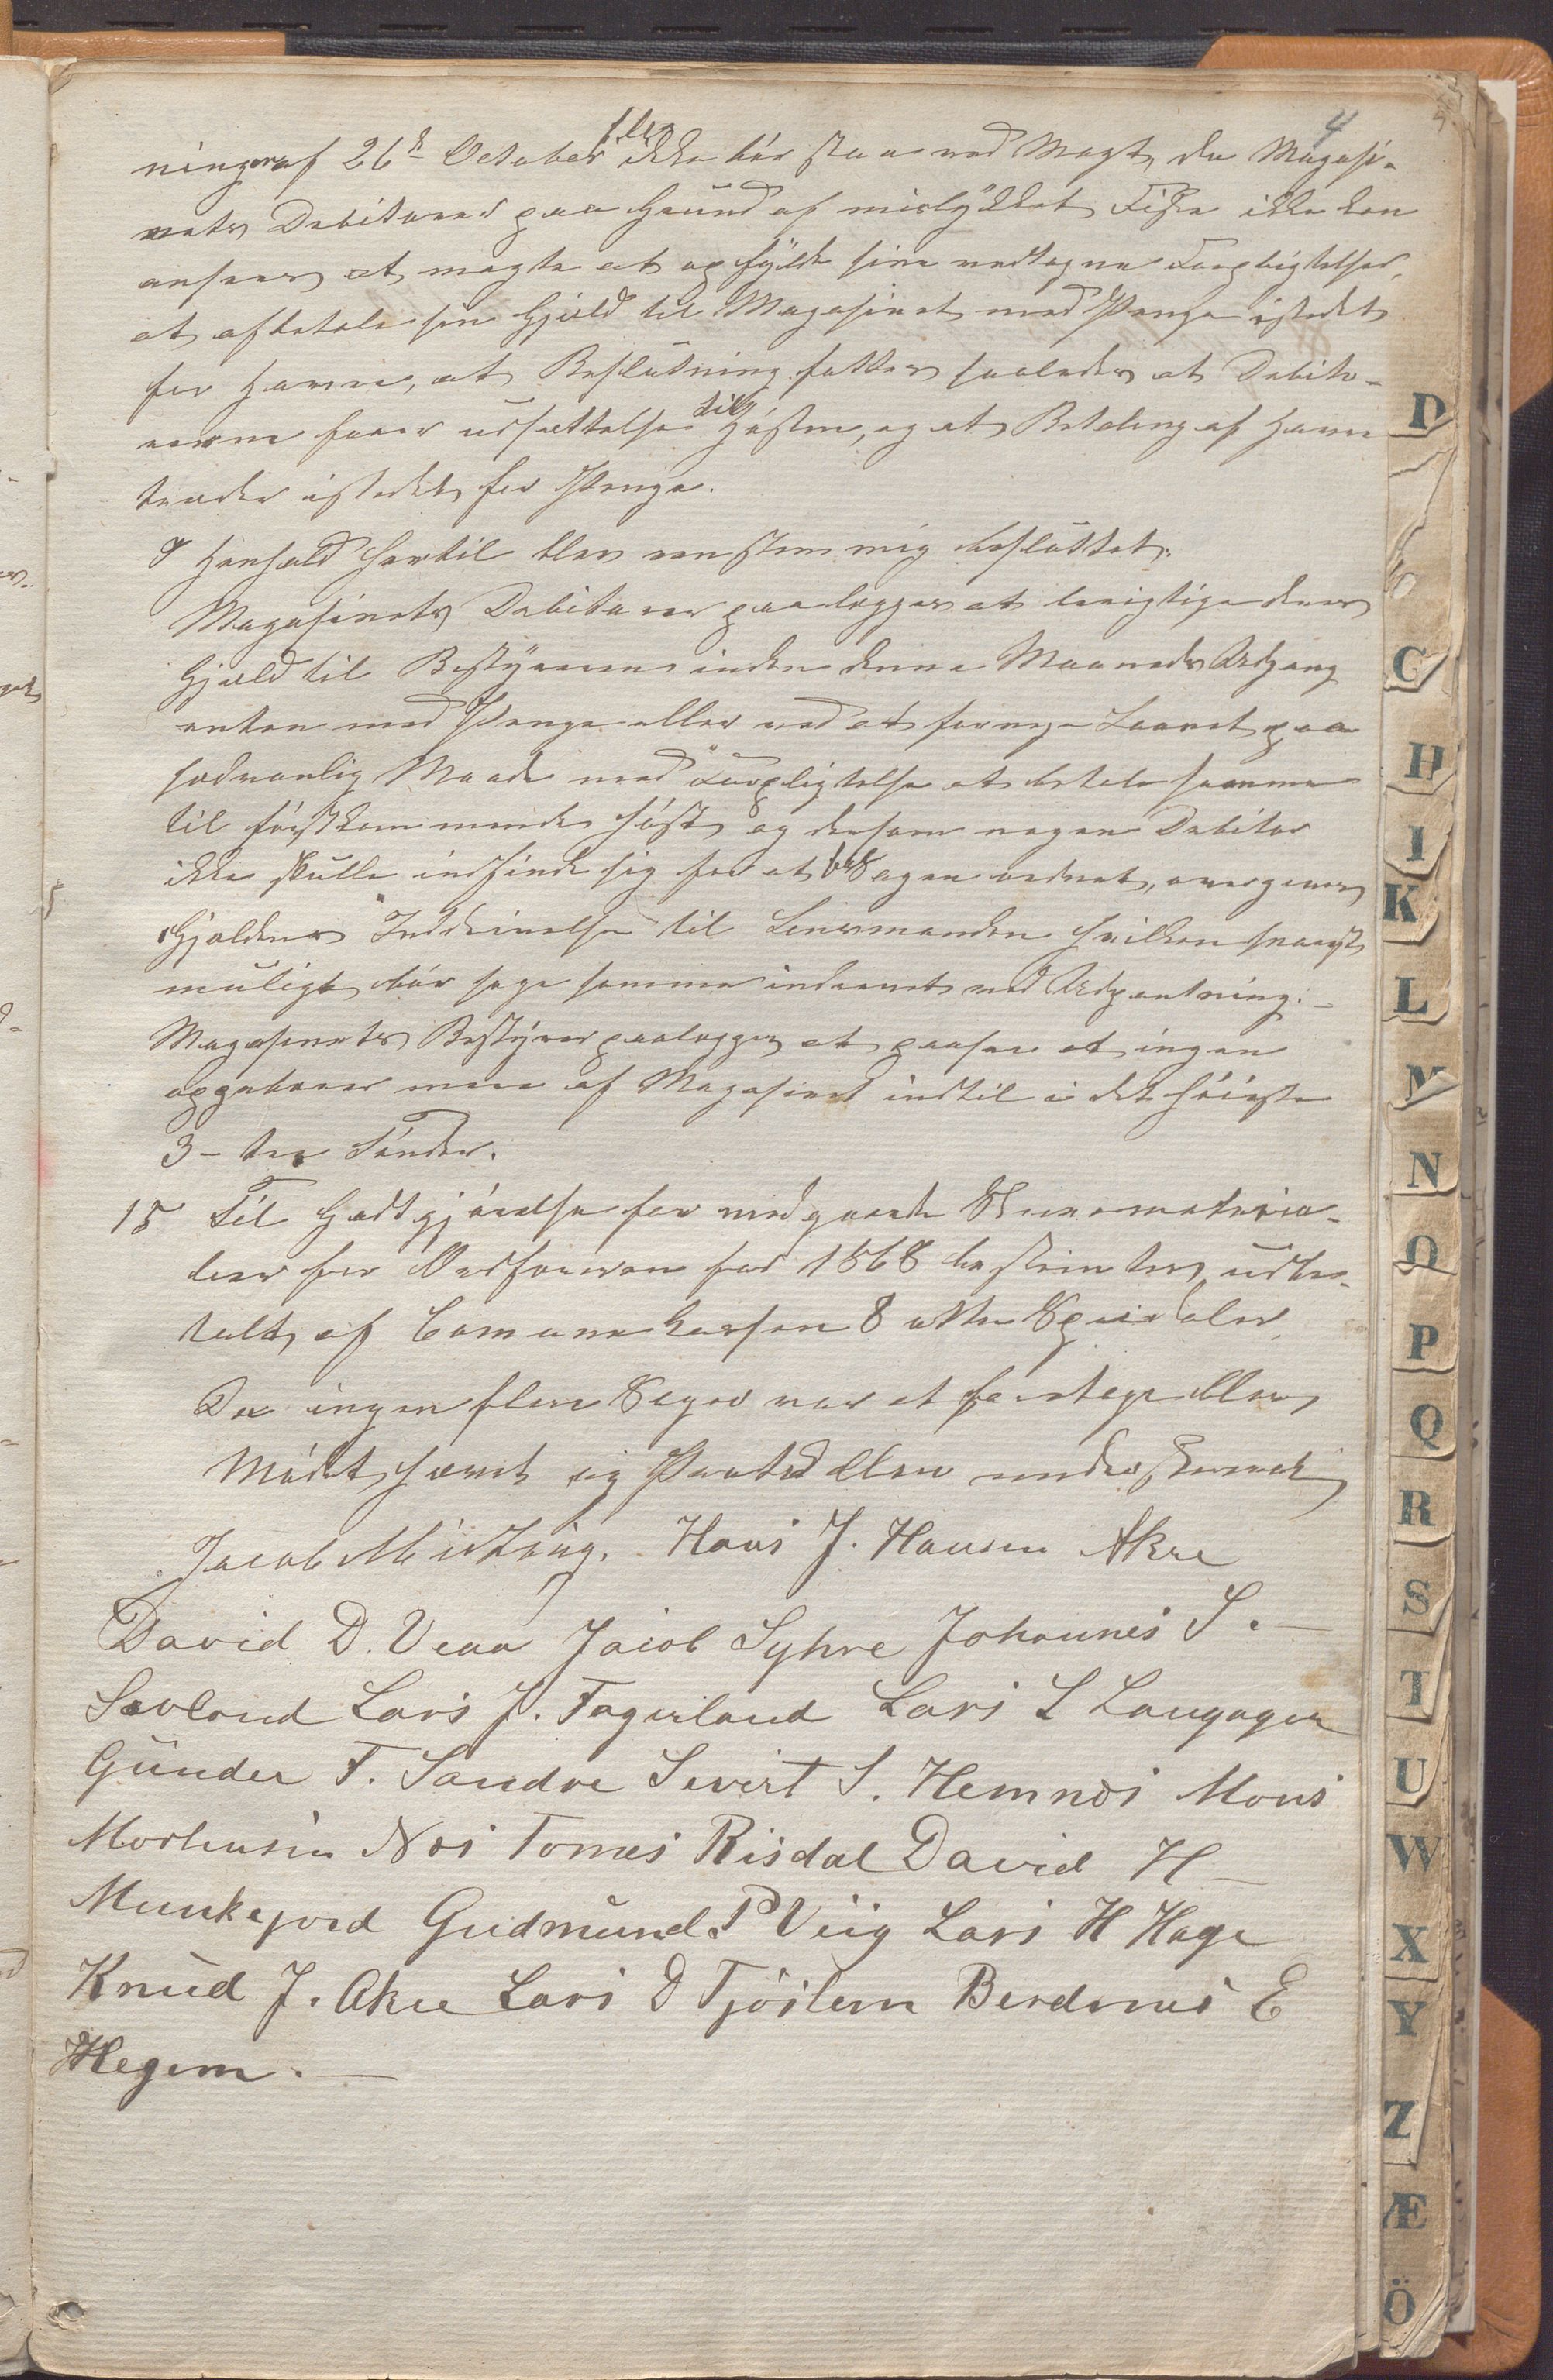 4
ningen af 26de October f. A. ikke bör staa ved Magt, da Magasi-
nets Debitorer paa Grund af mislykket Fiske ikke kan
ansees at magte at opfylde sine vedtagne Forpligtelser,
at afbetale sin Gjæld til Magasinet med Penge istedet
for Havre, at Beslutning fattes saaledes at Debito-
rerne faaer udsættelse til Hösten, og at Betaling af Havre
træder istedet for Penge.
I Henhold hertil blev eenstemmig besluttet:
Magasinets Debitorer paalægges at berigtige deres
Gjæld til Bestyreren inden denne Maaneds Udgang
enten med Penge eller ved at fornye Laanet paa
sædvanlig Maade med Forpligtelse at betale samme
til förstkommende Höst, og dersom nogen Debitor
ikke skulle indfinde sig for at faa Sagen ordnet, overgives
Gjældens Inddrivelse til Lensmanden hvilken snarest
muligt bör søge samme inddrevet ved Udpantning. -
Magasinets Bestyrer paalægges at paasee at ingen
opgutorer mere af Magasinet indtil i det höieste
3 - tre Tönder.
15 Til Godtgjörelse for medgaaede Skrivemateria-
lier for Ordföreren for 1868 bestemtes udbe-
talt af Communekassen 8 otte Speciedaler
Da ingen flere Sager var at foretage blev
Mödet hævet og Protocollen underskrevet
Jacob Mirtzüg. Hans J. Hansen Akre
David D. Veaa Jacob Syhre Johannes S. -
Sæveland Lars J. Fagerland Lars L Langager
Gunder T. Sandve Severt S. Hemnæs Mons
Mortensen Næs Tomes Risdal David H -
Munkejord Gudmund P Viig Lars H Hage
Knud J. Akre Lars D Tjöstem Berdines E
Hegem. -
D
C
H
I
K
L
M
N
O
P
Q
R
S
T
U
W
X
Y
Z
Æ
Ö